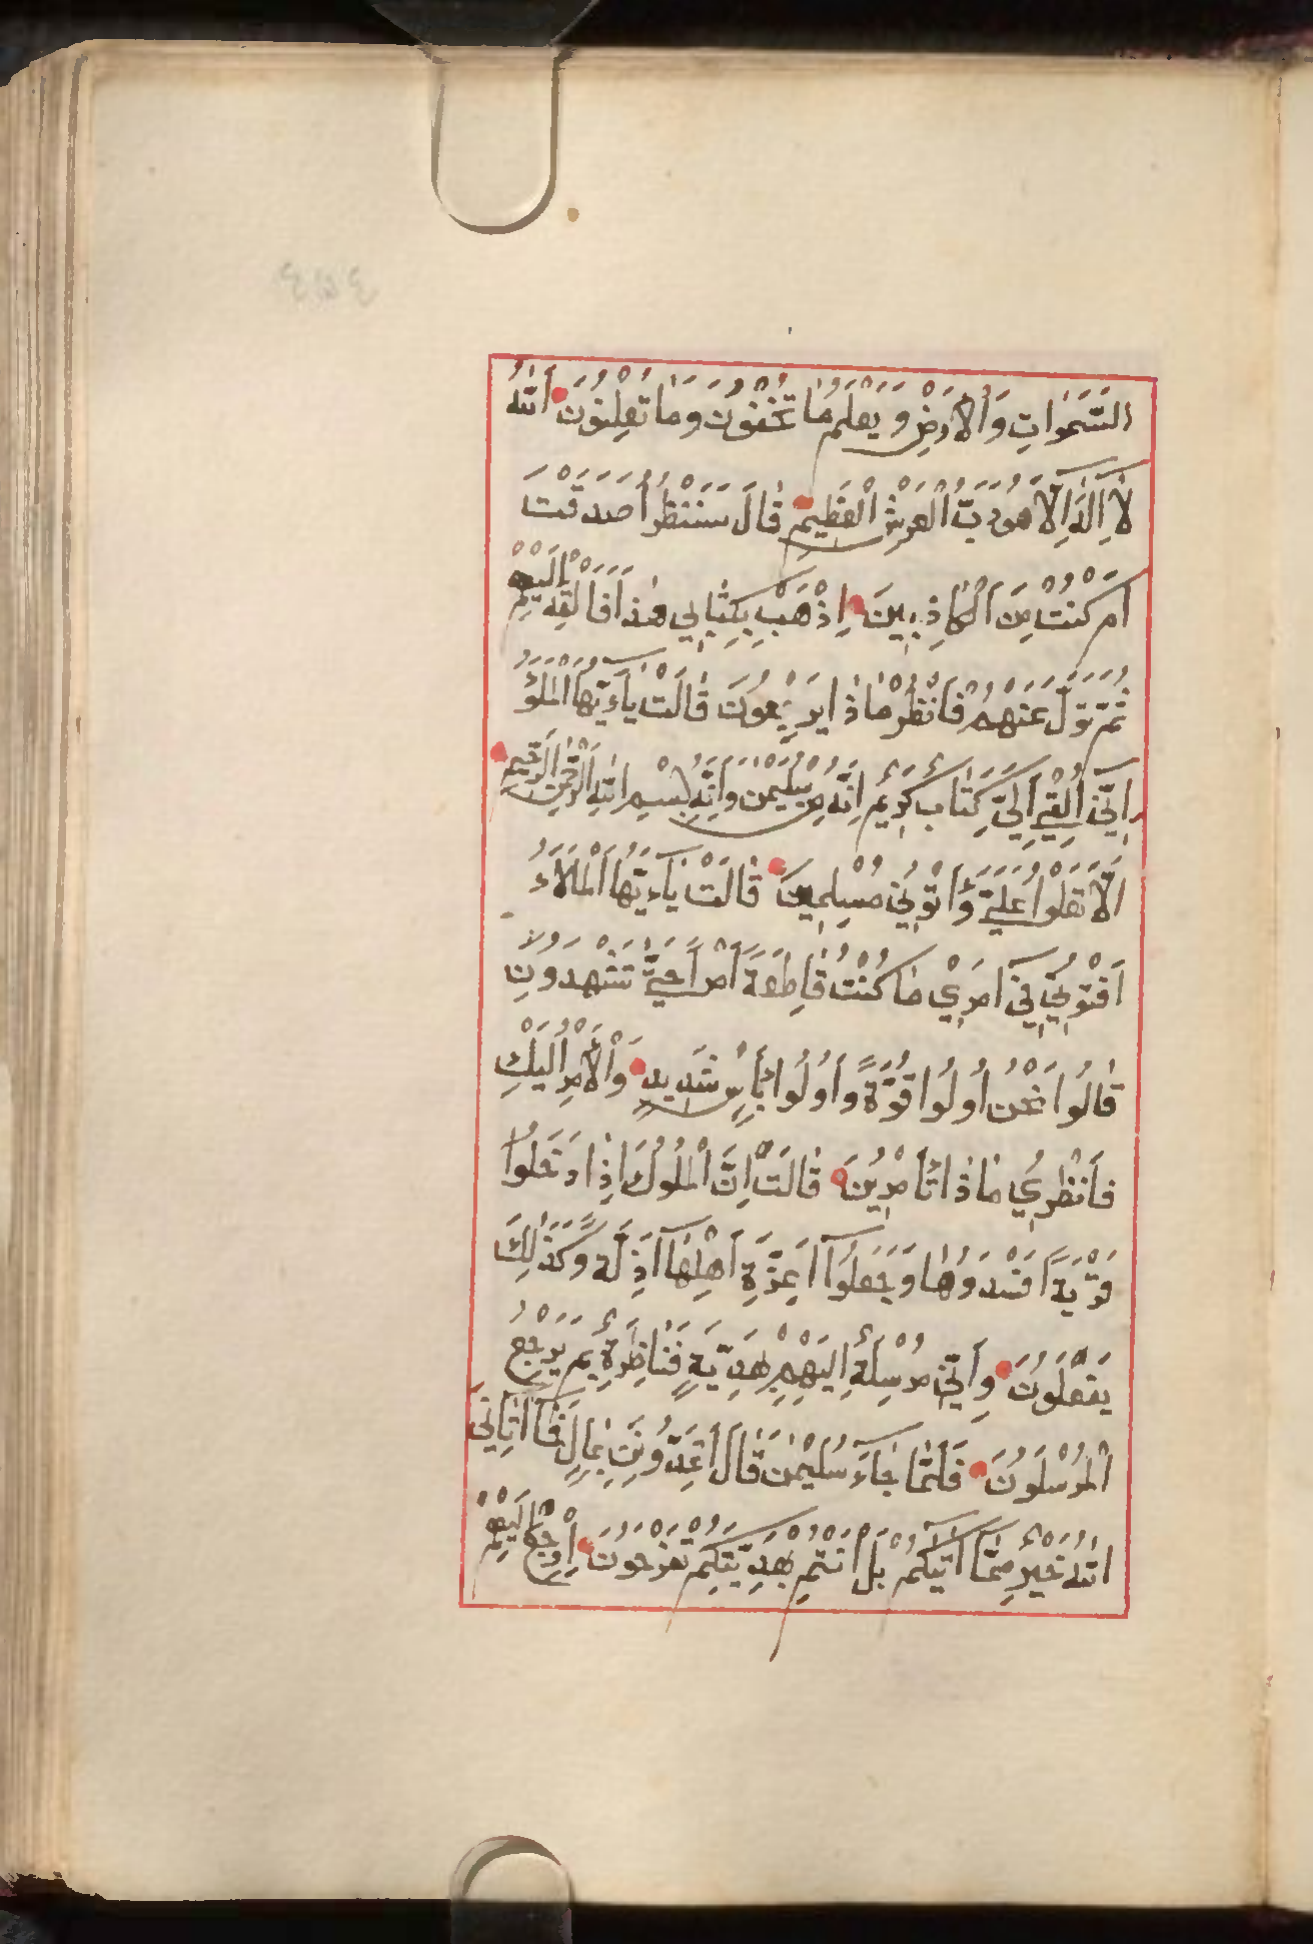 السَّمٰوَاتِ وَالْاَرْضِ وَيَعْلَمُ مَا تُخْفُوْنَ وَمَا تُعْلِنُوْنَ اَللّٰهُ
لَآ اِلٰهَ اِلَّا هُوَ رَبُّ الْعَرْشِ الْعَظِيْمِ قَالَ سَنَنْظُرُ اَصَدَقْتَ
اَمْ كُنْتَ مِنَ الْكَاذِبِيْنَ اِذْهَبْ بِكِتَابِي هٰذَا فَاَلْقِهْ اِلَيْهِمْ
ثُمَّ تَوَلَّ عَنْهُمْ فَانْظُرْ مَاذَا يَرْجِعُوْنَ قَالَتْ يَآءَيُّهَا الْمَلَؤُ
اِنِّيٓ اُلْقِيَ اِلَيَّ كِتَابٌ كَرِيْمٌ اِنَّهُ مِنْ سُلَيْمٰنَ وَاِنَّهُ بِسْمِ اللّٰهِ الرَّحْمٰنِ الرَّحِيْمِ
اَلَّا تَعْلُوْا عَلَيَّ وَأْتُوْنِي مُسْلِمِيْنَ قَالَتْ يَآءَيُّهَا الْمَلَاءُ
اَفْتُوْنِي فِيٓ اَمْرِيْ مَا كُنْتُ قَاطِعَةً اَمْرًا حَتّٰى تَشْهَدُوْنِ
قَالُوا نَحْنُ اُولُوا قُوَّةٍ وَاُولُوا بَأْسٍ شَدِيدٍ وَالْاَمْرُ اِلَيْكِ
فَانْظُرِيْ مَاذَا تَأْمُرِيْنَ قَالَتْ اِنَّ الْمُلُوْكَ اِذَا دَخَلُوا
قَرْيَةً اَفْسَدُوْهَا وَجَعَلُوٓا اَعِزَّةَ اَهْلِهَآ اَذِلَّة وَكَذٰلِكَ
يَفْعَلُوْنَ وَاِنِّي مُرْسِلَةٌ اِلَيْهِمْ بِهَدِيَّةٍ فَنَاظِرَةٌ بِمَ يَرْجِعُ
الْمُرْسَلُوْنَ فَلَمَّا جَآءَ سُلَيْمٰنَ قَالَ اَتُمِدُّوْنَنِ بِمَالٍ فَمَآ اٰتَانِيَ
اللّٰهُ خَيْرٌ مِمَّآ اٰتٰيكُمْ بَلْ اَنْتُمْ بِهَدِيَّتِكُمْ تَفْرَحُوْنَ اِرْجِعْ اِلَيْهِمْ